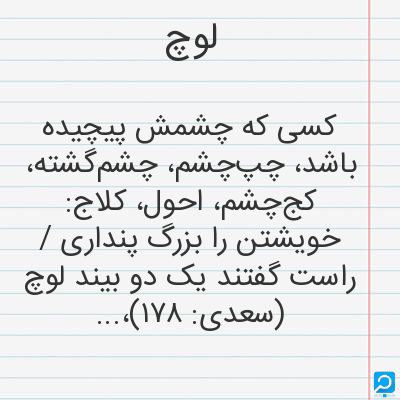 لوچ
کسی که چشمش پیچیده
باشد، چپ‌چشم، چشم‌گشته،
کج‌چشم، احول، کلاج:
خویشتن را بزرگ پنداری /
راست گفتند یک دو بیند لوچ
(سعدی: ۱۷۸)،...